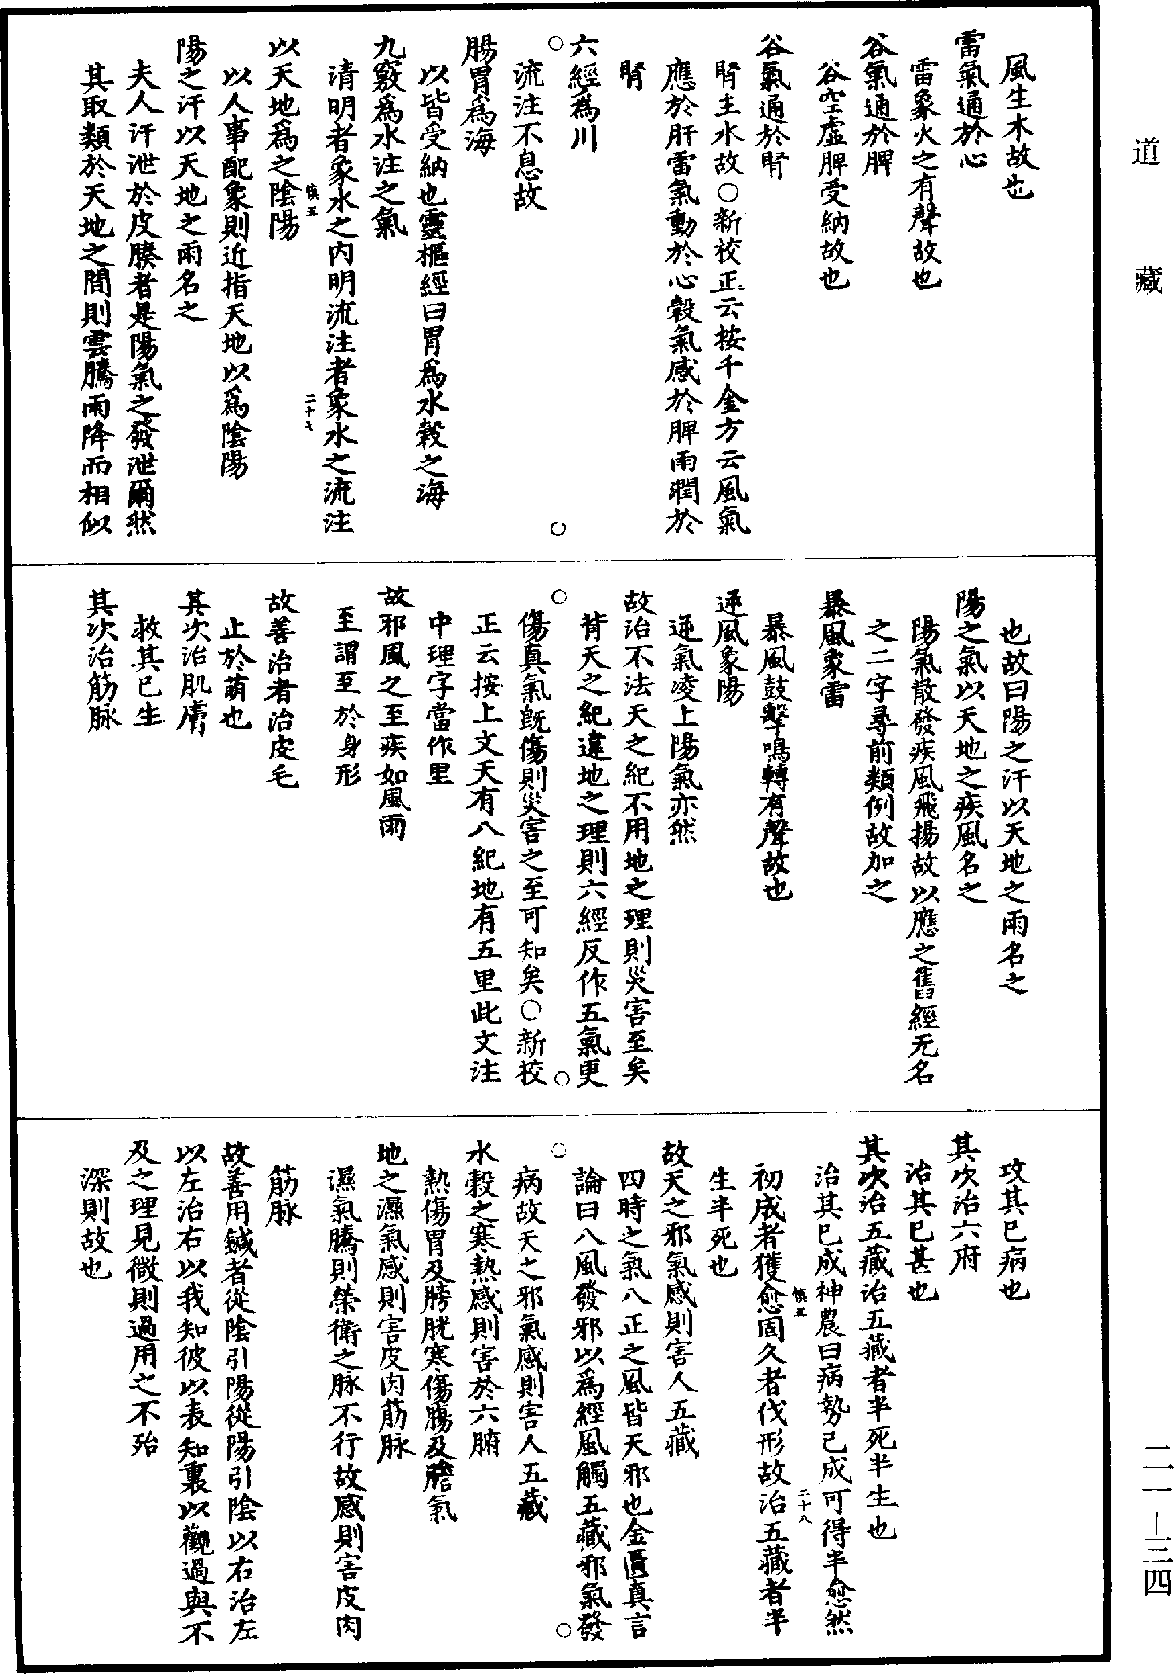 道藏
風生木故也
雷氣通於心
雷象火之有聲故也
谷氣通於脾
谷空虛脾受納故也
谷氣通於腎
腎主水故○新校正云按千金方云風氣
應於肝雷氣動於心穀氣感於脾雨潤於
腎
六經為川
○流注不息故○
腸胃為海
以皆受納也靈樞經曰胃為水穀之海
九竅為水注之氣
清明者象水之內明流注者象水之流注
慎五
二十七
以天地為之陰陽
以人事配象則近指天地以為陰陽
陽之汗以天地之雨名之
夫人汗泄於皮腠者是陽氣之發泄爾然
其取類於天地之間則雲騰雨降而相似
也故曰陽之汗以天地之雨名之
陽之氣以天地之疾風名之
陽氣散發疾風飛揚故以應之舊經无名
之二字尋前類例故加之
暴風象雷
暴風鼓擊鳴轉有聲故也
逆風象陽
逆氣凌上陽氣亦然
故治不法天之紀不用地之理則災害至矣
背天之紀違地之理則六經反作五氣更
○○
傷真氣既傷則災害之至可知矣○新校
正云按上文天有八紀地有五里此文注
中理字當作里
故邪風之至疾如風雨
至謂至於身形
故善治者治皮毛
止於萌也
其次治肌膚
救其已生
其次治筋脉
攻其已病也
其次治六府
治其已甚也
其次治五藏治五藏者半死半生也
治其已成神農曰病勢已成可得半愈然
慎五
二十八
初成者獲愈固久者伐形故治五藏者半
生半死也
故天之邪氣感則害人五藏
四時之氣八正之風皆天邪也金匱真言
論曰八風發邪以為經風觸五藏邪氣發
○○
病故天之邪氣感則害人五藏
水穀之寒熱感則害於六腑
熱傷胃及膀胱寒傷腸及膽氣
地之濕氣感則害皮肉筋脉
濕氣騰則榮衛之脉不行故感則害皮肉
筋脉
故善用鍼者從陰引陽從陽引陰以右治左
以左治右以我知彼以表知裏以觀過與不
及之理見微則過用之不殆
深則故也
二一—三四